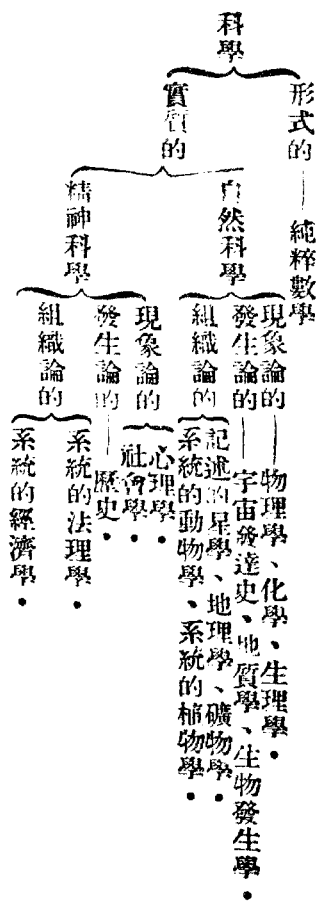 科學
形式的——純粹數學
實質的
自然科學
現象論的——物理學、化學、生理學．
發生論的——宇宙發達史、地質學、生物發生學．
組織論的
記述的星學、地理學、礦物學．
系統的動物學、系統的植物學．
精神科學
現象論的
心理學．
社會學．
發生論的——歷史．
組織論的
系統的法理學．
系統的經濟學．